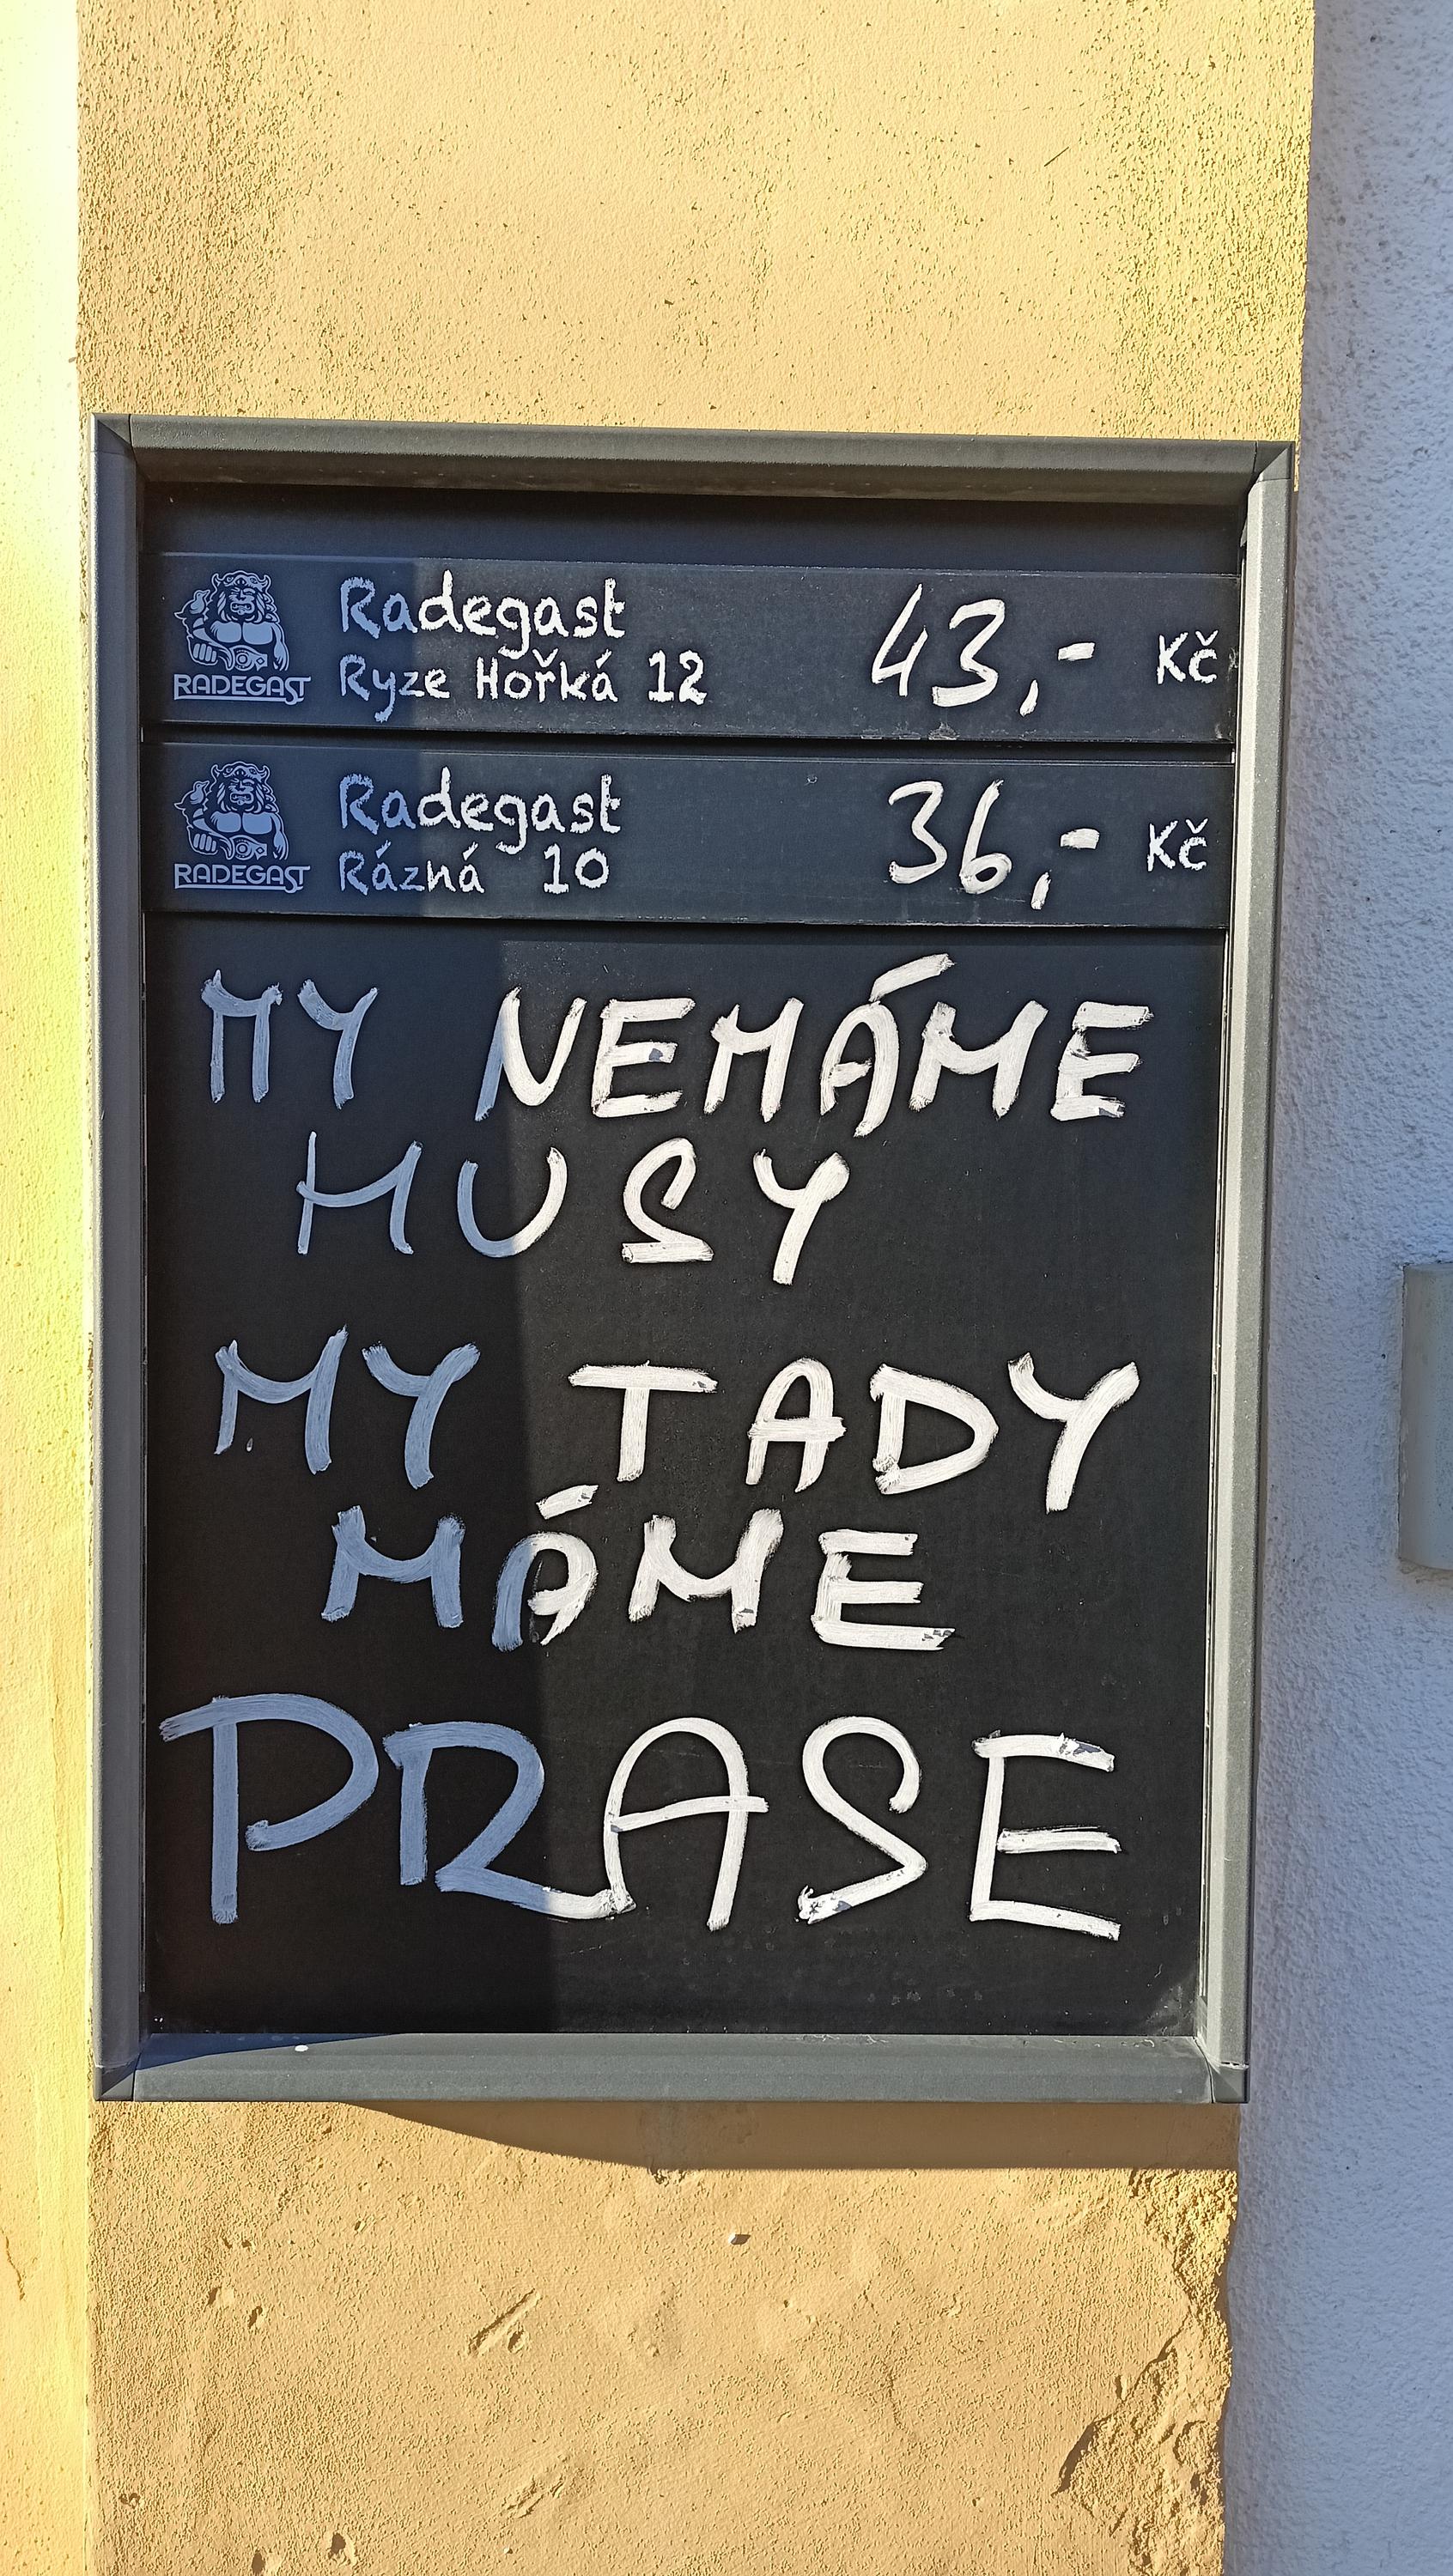 RADEGAST
Radegast
Ryze Hořká 12
43,- Kč
RADEGAST
Radegast
Rázná 10
36,- Kč
MY NEMÁME
HUSY
MY TADY
MÁME
PRASE